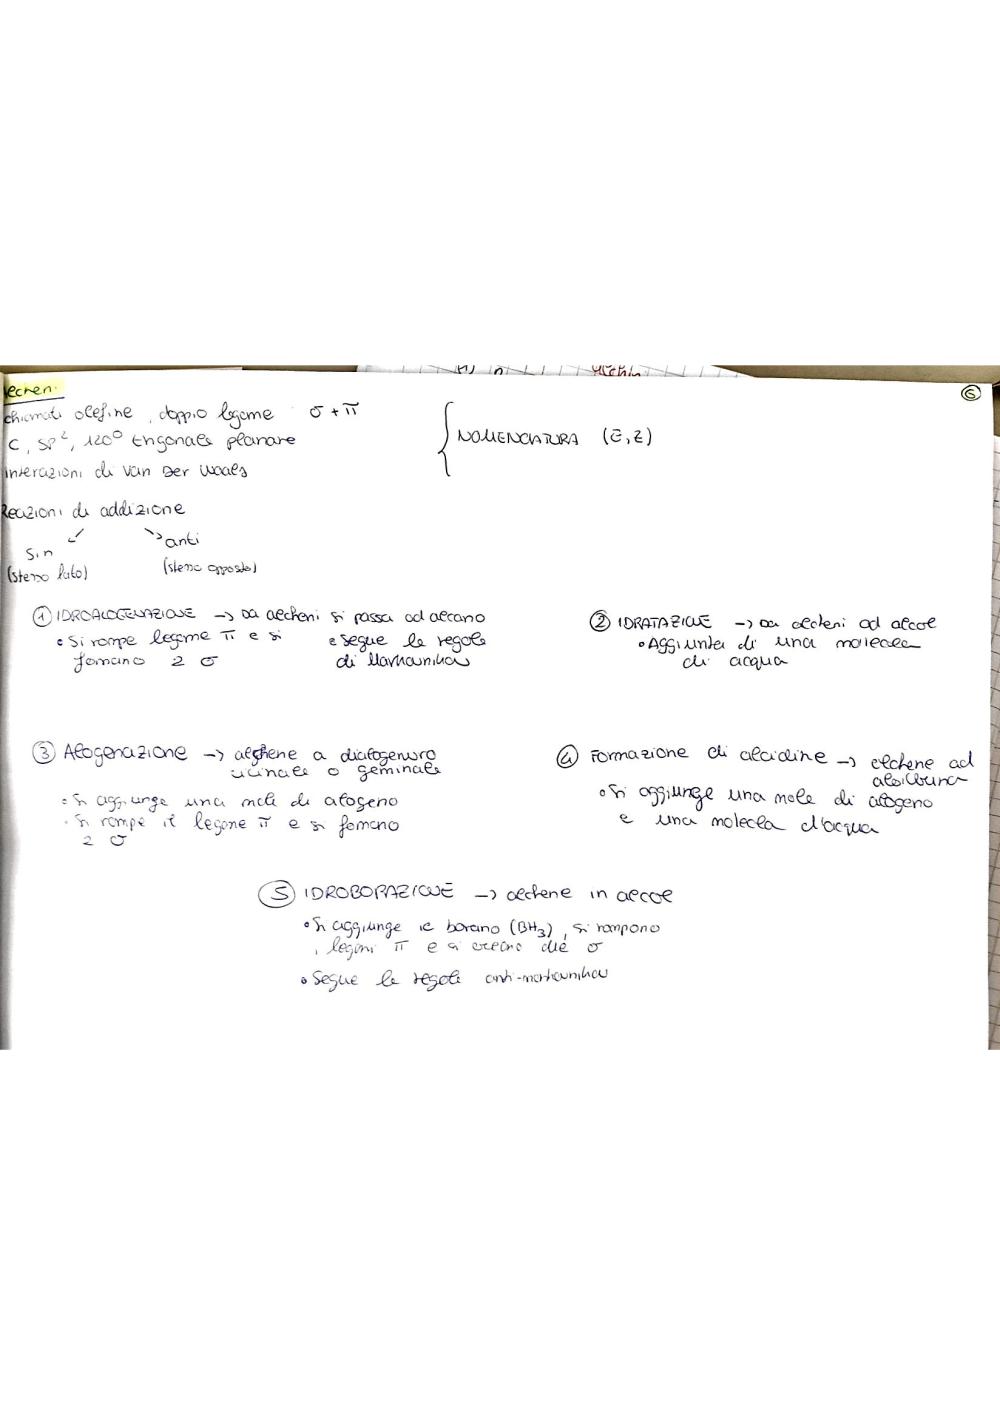 Alcheni
6
chiamati olefine, doppio legame σ + π
C, SP², 120° trigonale planare
interazioni di Van Der Waals
NOMENCLATURA (E, Z)
Reazioni di addizione
Sin
anti
(stesso lato)
(stesso opposto)
① IDROALOGENAZIONE → Da alcheni si passa ad alcano
• Si rompe legame π e si
formano 2 σ
• Segue le regole
di Markovnikov
② IDRATAZIONE → Da alcheni ad alcol
• Aggiunta di una molecola
di acqua
③ Alogenazione → alchene a dialogenuro
vicinale o geminale
• Si aggiunge una mole di alogeno
• Si rompe il legame π e si formano
2 σ
④ Formazione di alcidine → alchene ad
• Si aggiunge una mole di alogeno
e una molecola d'acqua
⑤ IDROBORAZIONE → alchene in alcol
• Si aggiunge il borano (BH3), si rompono
i legami π e si creano due σ
• Segue le regole anti-markovnikov